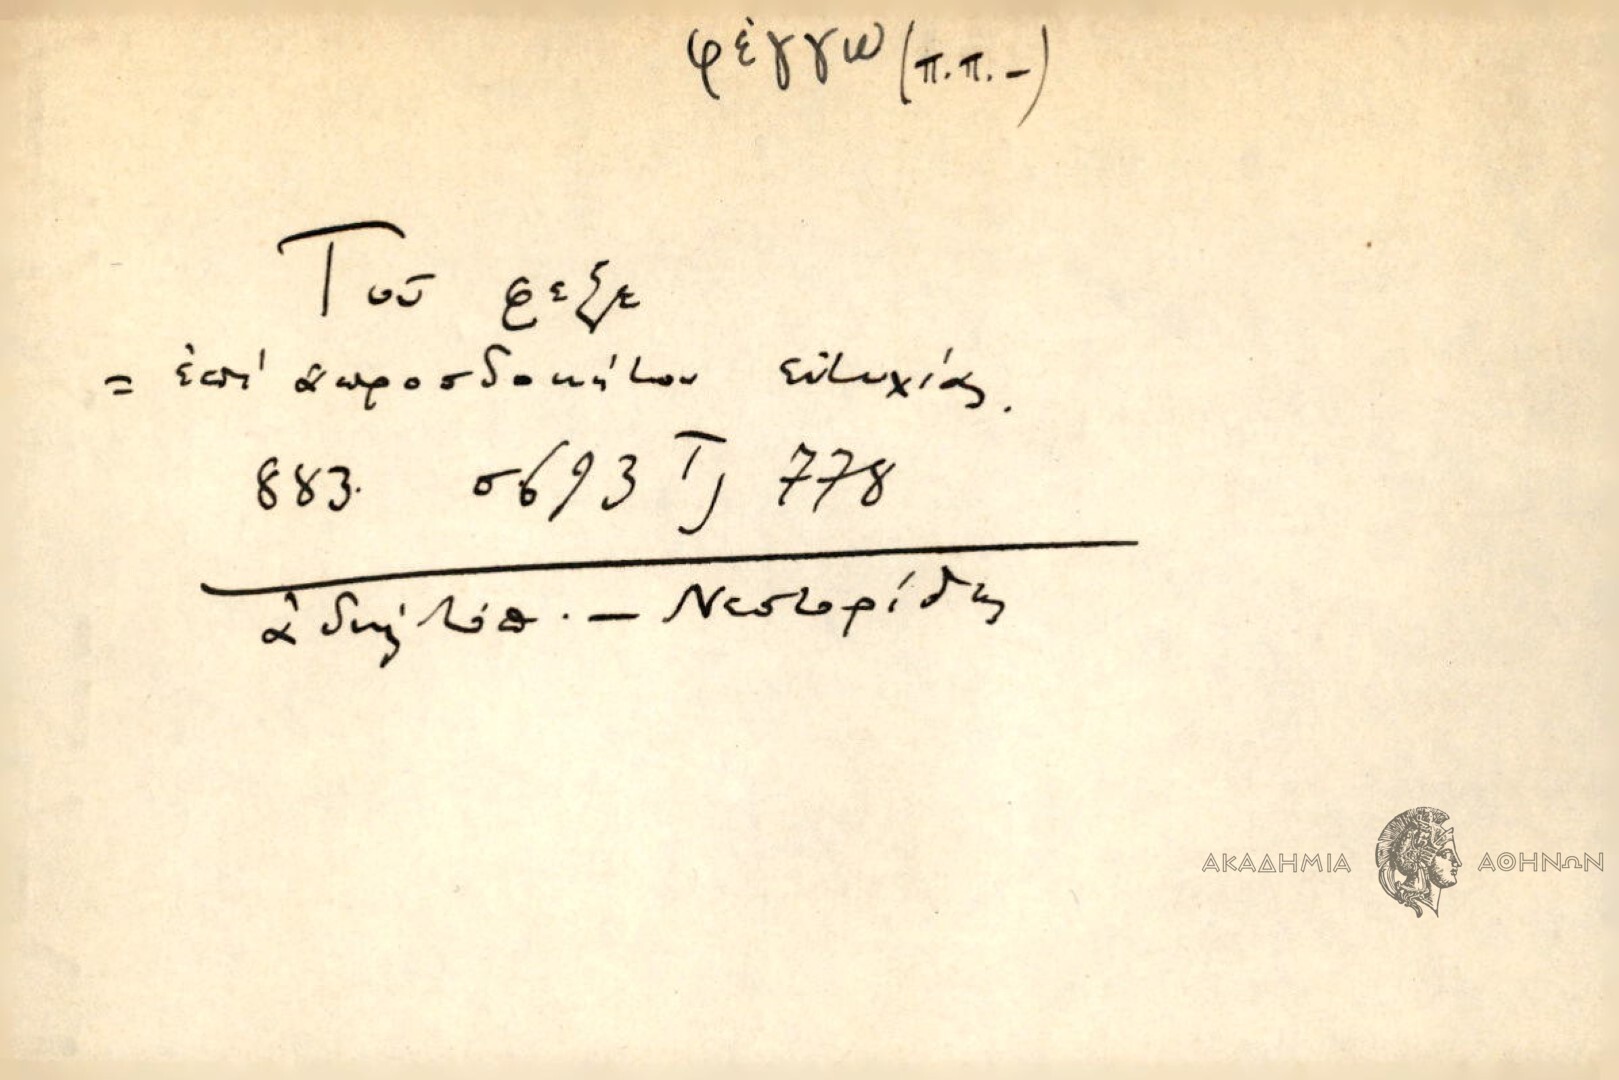 φέγγω (π.π. -)
Τοῦ φεξε
= ἐπί ἀπροσδοκήτου εὐτυχίας.
883. σ693 Τ) 778
ἀδήλ. τόπ. - Νεστορίδης
ΑΚΑΔΗΜΙΑ ΑΘΗΝΩΝ